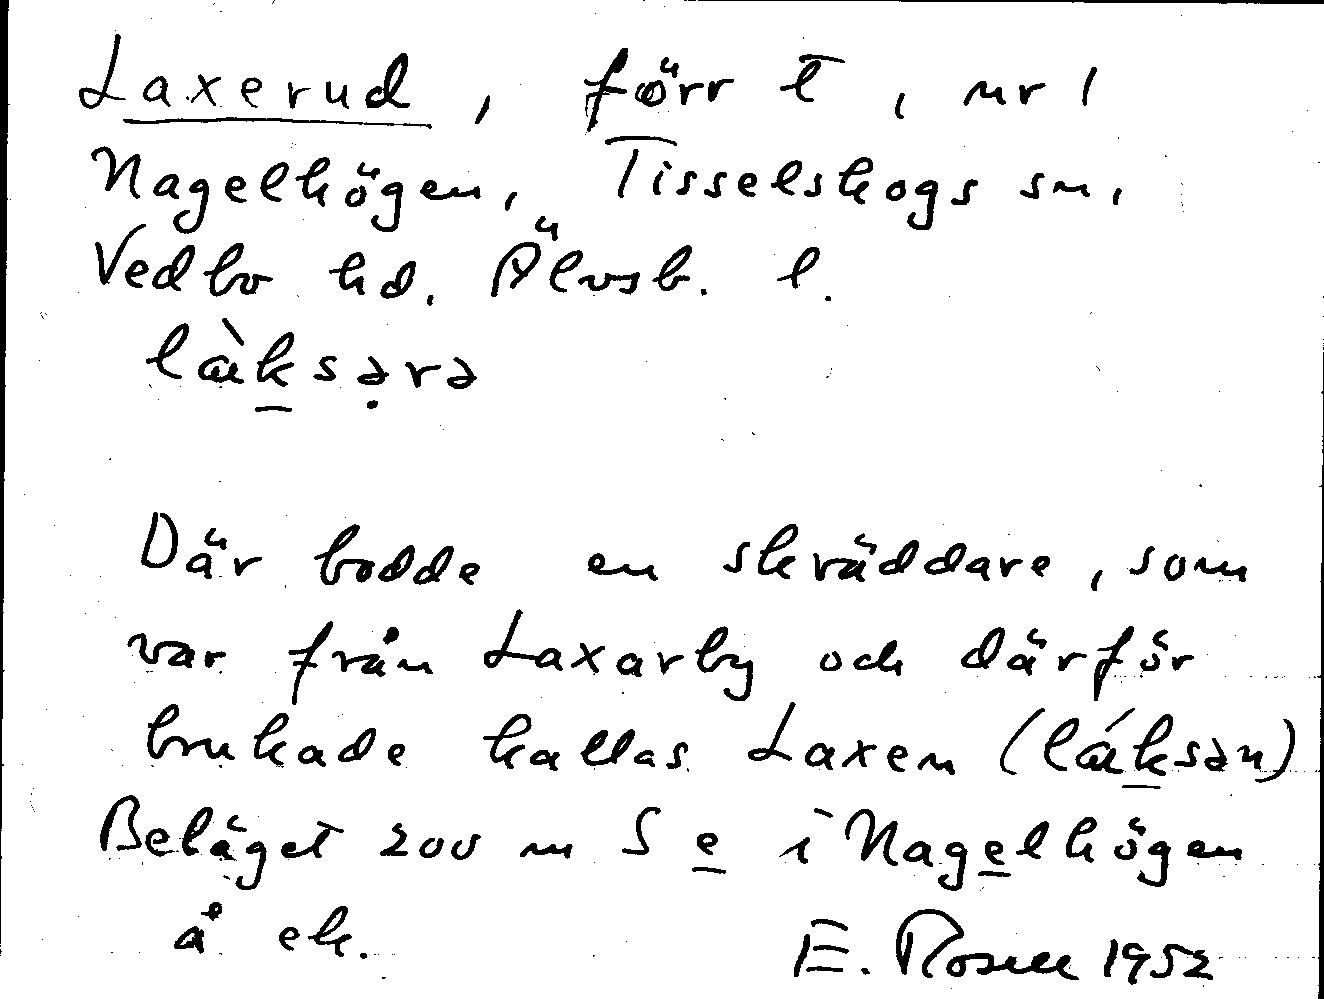 Laxerud, förr t, nr 1
Nagelhögen, Tisselskogs sn,
Vedbo hd. Älvsb. l.
là̱ksə̣rə
Där bodde en skräddare, som
var från Laxarby och därför
brukade kallas Laxen (lák̲sən)
Beläget 200 m S e̲ i Nage̲lhögen
å ek.
E. Rosell 1952